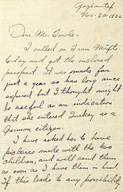 Gaziantep
Nov. 30, 1936
Dear Mr. Fowle:
I called on Frau
today and got the enclosed
passport. It was made for
just a year so has long since
expired but I thought might
be useful as an indication
she entered Turkey as a
German citizen.
I have asked her to have
pictures made with the two
children, and will send them
as soon as I have them – and
if this leads to any possibility